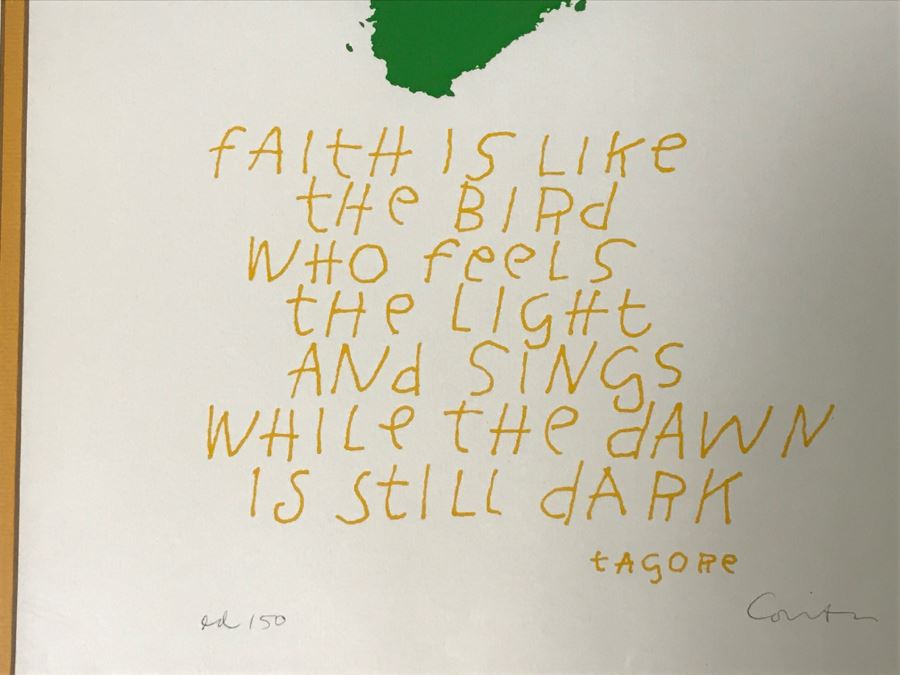 fAItH IS LIKe
tHe BIRd
WHO feeLS
tHe LIgHt
ANd SINgS
WHILe tHe dAWN
IS StILL dARK
tAgORe
ed 150
Corita